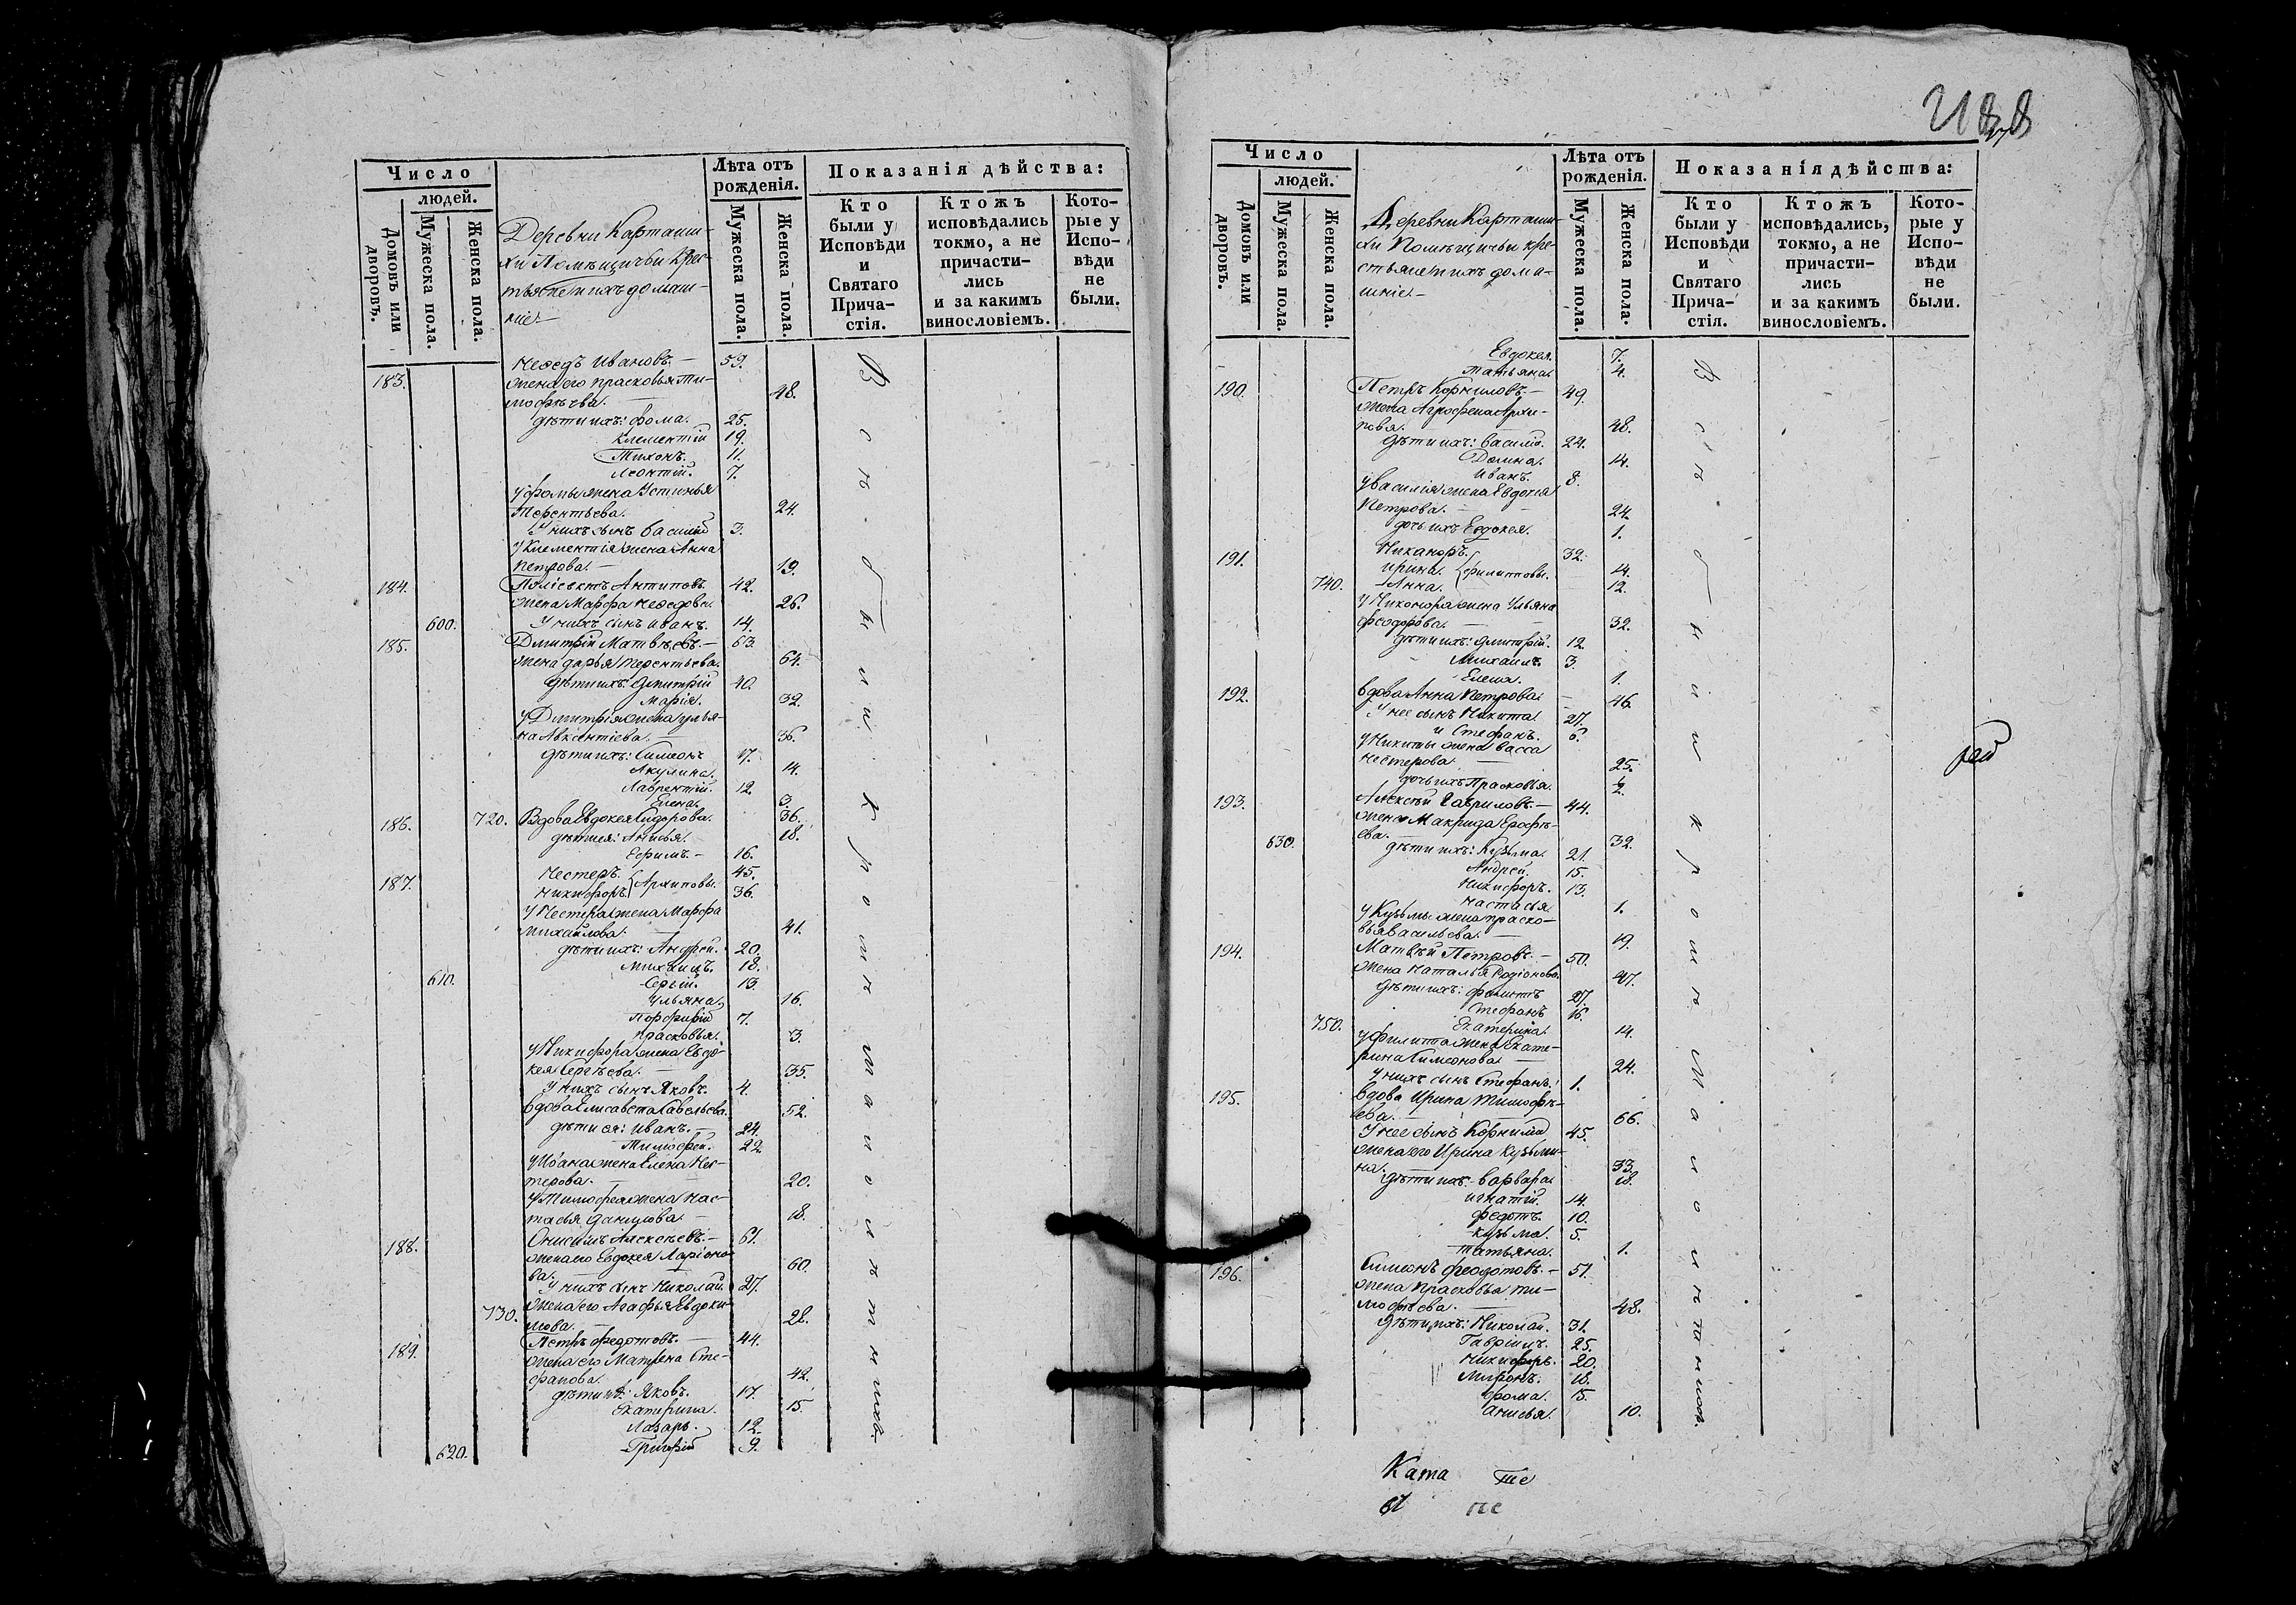 Число
людей.
Домовъ или дворовъ.
Мужеска пола.
Женска пола.
Деревни Карташи-
хи Помѣщичьи Крес-
тьяне и ихъ домаш-
ніе.
Лѣта отъ рожденія.
Мужеска пола.
Женска пола.
Показанія дѣйства:
Кто были у Исповѣди и Святаго Прича-стія.
Ктожъ исповѣдались токмо, а не причасти-лись и за какимъ винословіемъ.
Кото-рые у Испо-вѣди не были.
183. Неѳедъ Ивановъ. 59.
жена его Прасковья Ти-
мофѣева. 48.
дѣти ихъ: Фома. 25.
Климентій 19.
Тихонъ. 11.
Леонтій. 7.
У Фомы жена Устинья
Терентьева. 24.
У нихъ сынъ Василій 3.
У Климентія жена Анна
Петрова. 19.
184. Поліевктъ Антиповъ. 42.
жена Марфа Неѳедова. 26.
600. У нихъ сынъ Иванъ. 14.
185. Дмитрій Матвѣевъ. 63.
жена Дарья Терентьева. 64.
дѣти ихъ: Дмитрій 40.
Марія. 32.
У Дмитрія жена Улья-
на Авксентіева. 36.
дѣти ихъ: Симеонъ 17.
Акулина. 14.
Лаврентій. 12.
Елена. 3.
186. 720. Вдова Евдокея Сидорова. 36.
дѣти ея: Анисья. 18.
Ефимъ. 16.
187. Нестеръ. 45.
Никифоръ. Архиповы. 36.
У Нестера жена Марфа
Михайлова. 41.
дѣти ихъ: Андрей. 20.
Михаилъ. 18.
610. Сергій. 13.
Ульяна. 16.
Порфирій 7.
Прасковья. 3.
У Никифора жена Евдо-
кея Сергѣева. 35.
У нихъ сынъ Яковъ. 4.
Вдова Елисавета Савельева. 52.
дѣти ея: Иванъ. 24.
Тимофей. 22.
У Ивана жена Елена Нес-
терова. 20.
У Тимофея жена Нас-
тасья Данилова. 18.
188. Онисимъ Алексѣевъ. 61.
жена его Евдокея Ларіоно-
ва. 60.
У нихъ сынъ Николай. 27.
730. жена его Агафья Евдоки-
мова. 28.
189. Петръ Федотовъ. 44.
жена его Матрена Сте-
фанова. 42.
дѣти ихъ: Яковъ. 17.
Екатерина. 15.
Лазарь. 12.
620. Григорій 9.
Число
людей.
Домовъ или дворовъ.
Мужеска пола.
Женска пола.
Деревни Карташи-
хи Помѣщичьи кре-
стьяне и ихъ дома-
шніе.
Лѣта отъ рожденія.
Мужеска пола.
Женска пола.
Показанія дѣйства:
Кто были у Исповѣди и Святаго Прича-стія.
Ктожъ исповѣдались, токмо, а не причасти-лись и за какимъ винословіемъ.
Кото-рые у Испо-вѣди не были.
Евдокея. 7.
Татьяна. 4.
190. Петръ Корниловъ. 49.
жена Агрофена Архи-
пова. 48.
дѣти ихъ: Василій. 24.
Домна. 14.
Иванъ. 8.
У Василія жена Евдокея
Петрова. 24.
дочь ихъ Евдокея. 1.
191. Никаноръ. 32.
Ирина. Филиповы. 14.
740. Анна. 12.
У Никанора жена Ульяна
Феодорова. 32.
дѣти ихъ: Дмитрій. 12.
Михаилъ. 3.
Елена. 1.
192. Вдова Анна Петрова. 46.
У нее сынъ Никита 27.
и Стефанъ. 6.
У Никиты жена Васса
Нестерова. 25.
дочь ихъ Прасковья. 2.
193. Алексѣй Гавриловъ. 44.
жена Макрида Ерофѣ-
ева. 32.
630. дѣти ихъ: Кузьма. 21.
Андрей. 15.
Никифоръ. 13.
Настасья 1.
У Кузьмы жена Праско-
вья Васильева. 19.
194. Матвѣй Петровъ. 50.
жена Наталья Родіонова. 47.
дѣти ихъ: Филипъ 27.
Стефанъ 16.
750. Екатерина. 14.
У Филипа жена Екате-
рина Симеонова. 24.
У нихъ сынъ Стефанъ. 1.
195. Вдова Ирина Тимофѣ-
ева. 66.
У нее сынъ Корнилій 45.
жена его Ирина Кузьми-
на. 33.
дѣти ихъ: Варвара. 18.
Игнатій. 14.
Федотъ. 10.
Кузьма. 5.
Татьяна. 1.
196. Симеонъ Феодотовъ. 51.
жена Прасковья Ти-
мофѣева. 48.
дѣти ихъ: Николай. 31.
Гавріилъ. 25.
Никифоръ. 20.
Миронъ. 18.
Фома. 15.
Анисья. 10.
Ката